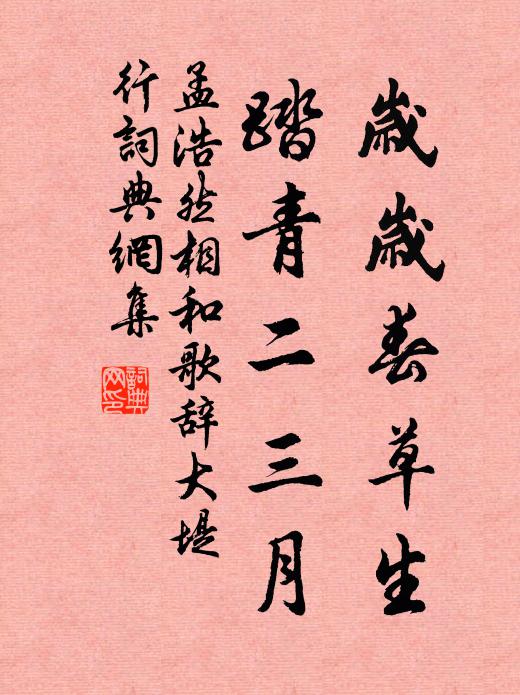 歲歲春草生
踏青二三月
孟浩然相和歌辞大堤
行詞典網集
詞典網印